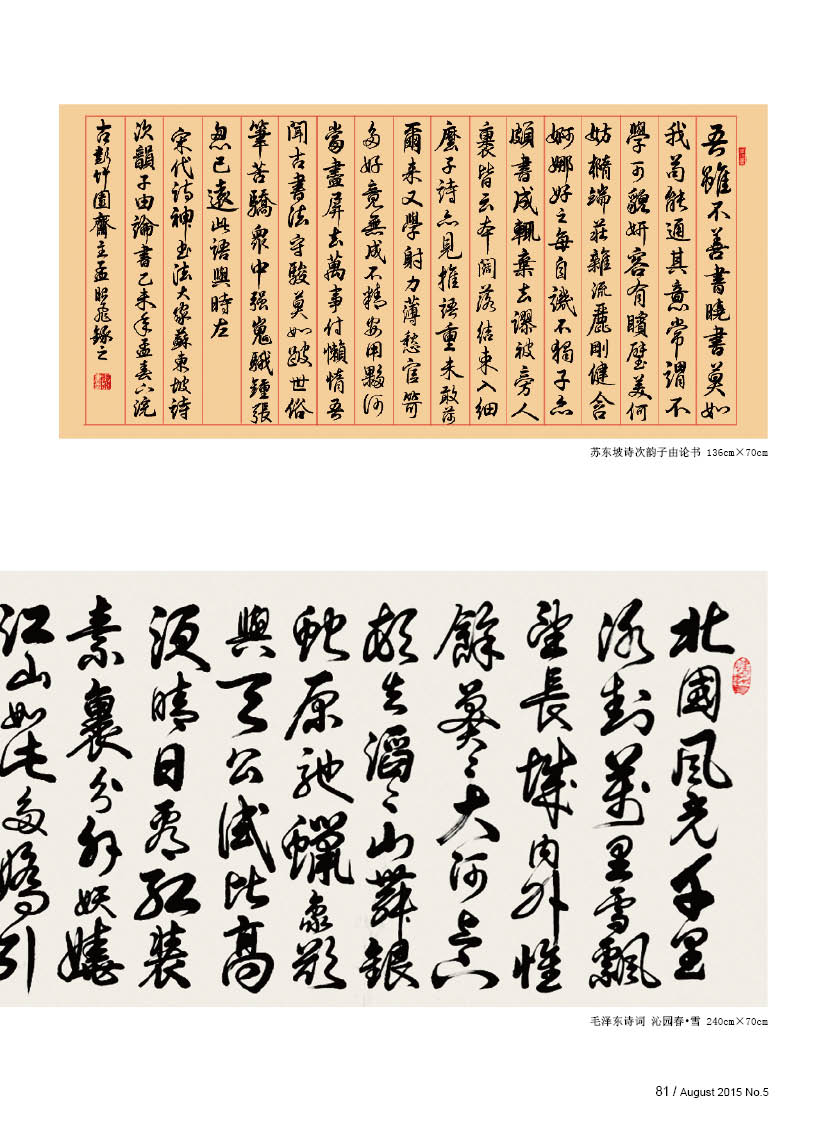 吾雖不善書曉書莫如
我苟能通其意常謂不
學可貌妍容有矉璧美何
妨橢端莊雜流麗剛健含
婀娜好之每自譏不獨子亦
頗書成輒棄去謬被旁人
裹皆云本闊落結束入細
麼子詩亦見推語重未敢荷
爾來又學射力薄愁官笴
多好竟無成不精安用夥何
當盡屏去萬事付懶惰吾
聞古書法守駿莫如跛世俗
筆苦驕衆中强嵬騀鍾張
忽已遠此語與時左
宋代詩神書法大家蘇東坡詩
次韻子由論書乙未年孟春浣
古彭竹園齋主孟昭錄之
苏东坡诗次韵子由论书 136cm×70cm
北國風光千里
冰封萬里雪飄
望長城内外惟
餘莽〻大河上下
頓失滔〻山舞銀
蛇原馳蠟象欲
與天公試比高
須晴日看紅裝
素裹分外妖嬈
江山如此多嬌引
毛泽东诗词 沁园春•雪 240cm×70cm
81 / August 2015 No.5